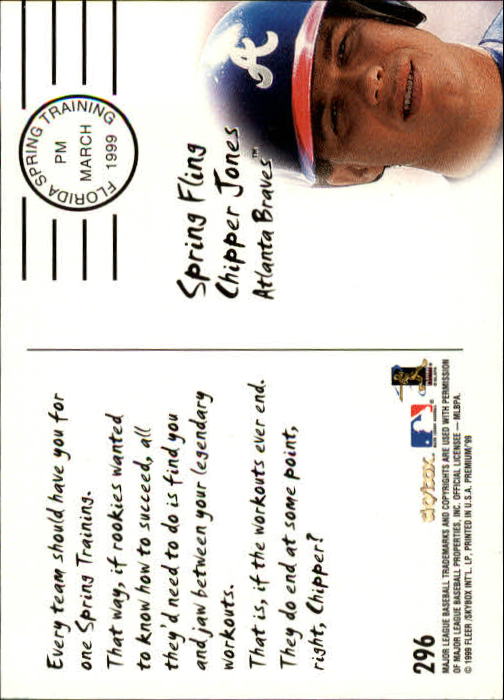 FLORIDA SPRING TRAINING
PM
MARCH
1999
Spring Fling
Chipper Jones
Atlanta Braves™
A
Every team should have you for
one Spring Training.
That way, if rookies wanted
to know how to succeed, all
they'd need to do is find you
and jaw between your legendary
workouts.
That is, if the workouts ever end.
They do end at some point,
right, Chipper?
296
skybox
MAJOR LEAGUE BASEBALL TRADEMARKS AND COPYRIGHTS ARE USED WITH PERMISSION
OF MAJOR LEAGUE BASEBALL PROPERTIES, INC. OFFICIAL LICENSEE — MLBPA.
© 1999 FLEER /SKYBOX INT'L. LP. PRINTED IN U.S.A. PREMIUM'99